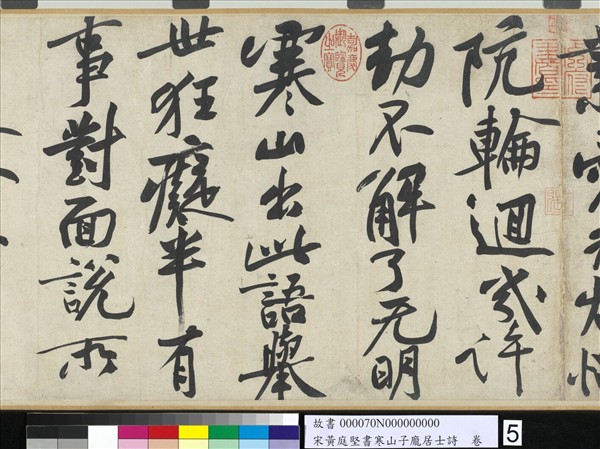 阬輪迴幾許
劫不解了无明
寒山出此語舉
世狂癡半有
事對面說所
嘉慶御覽之寶
故書 000070N000000000
宋黃庭堅書寒山子龐居士詩 卷
5